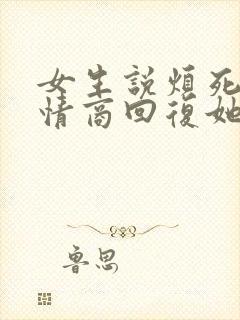 女生説煩死
情商回復她
魯思